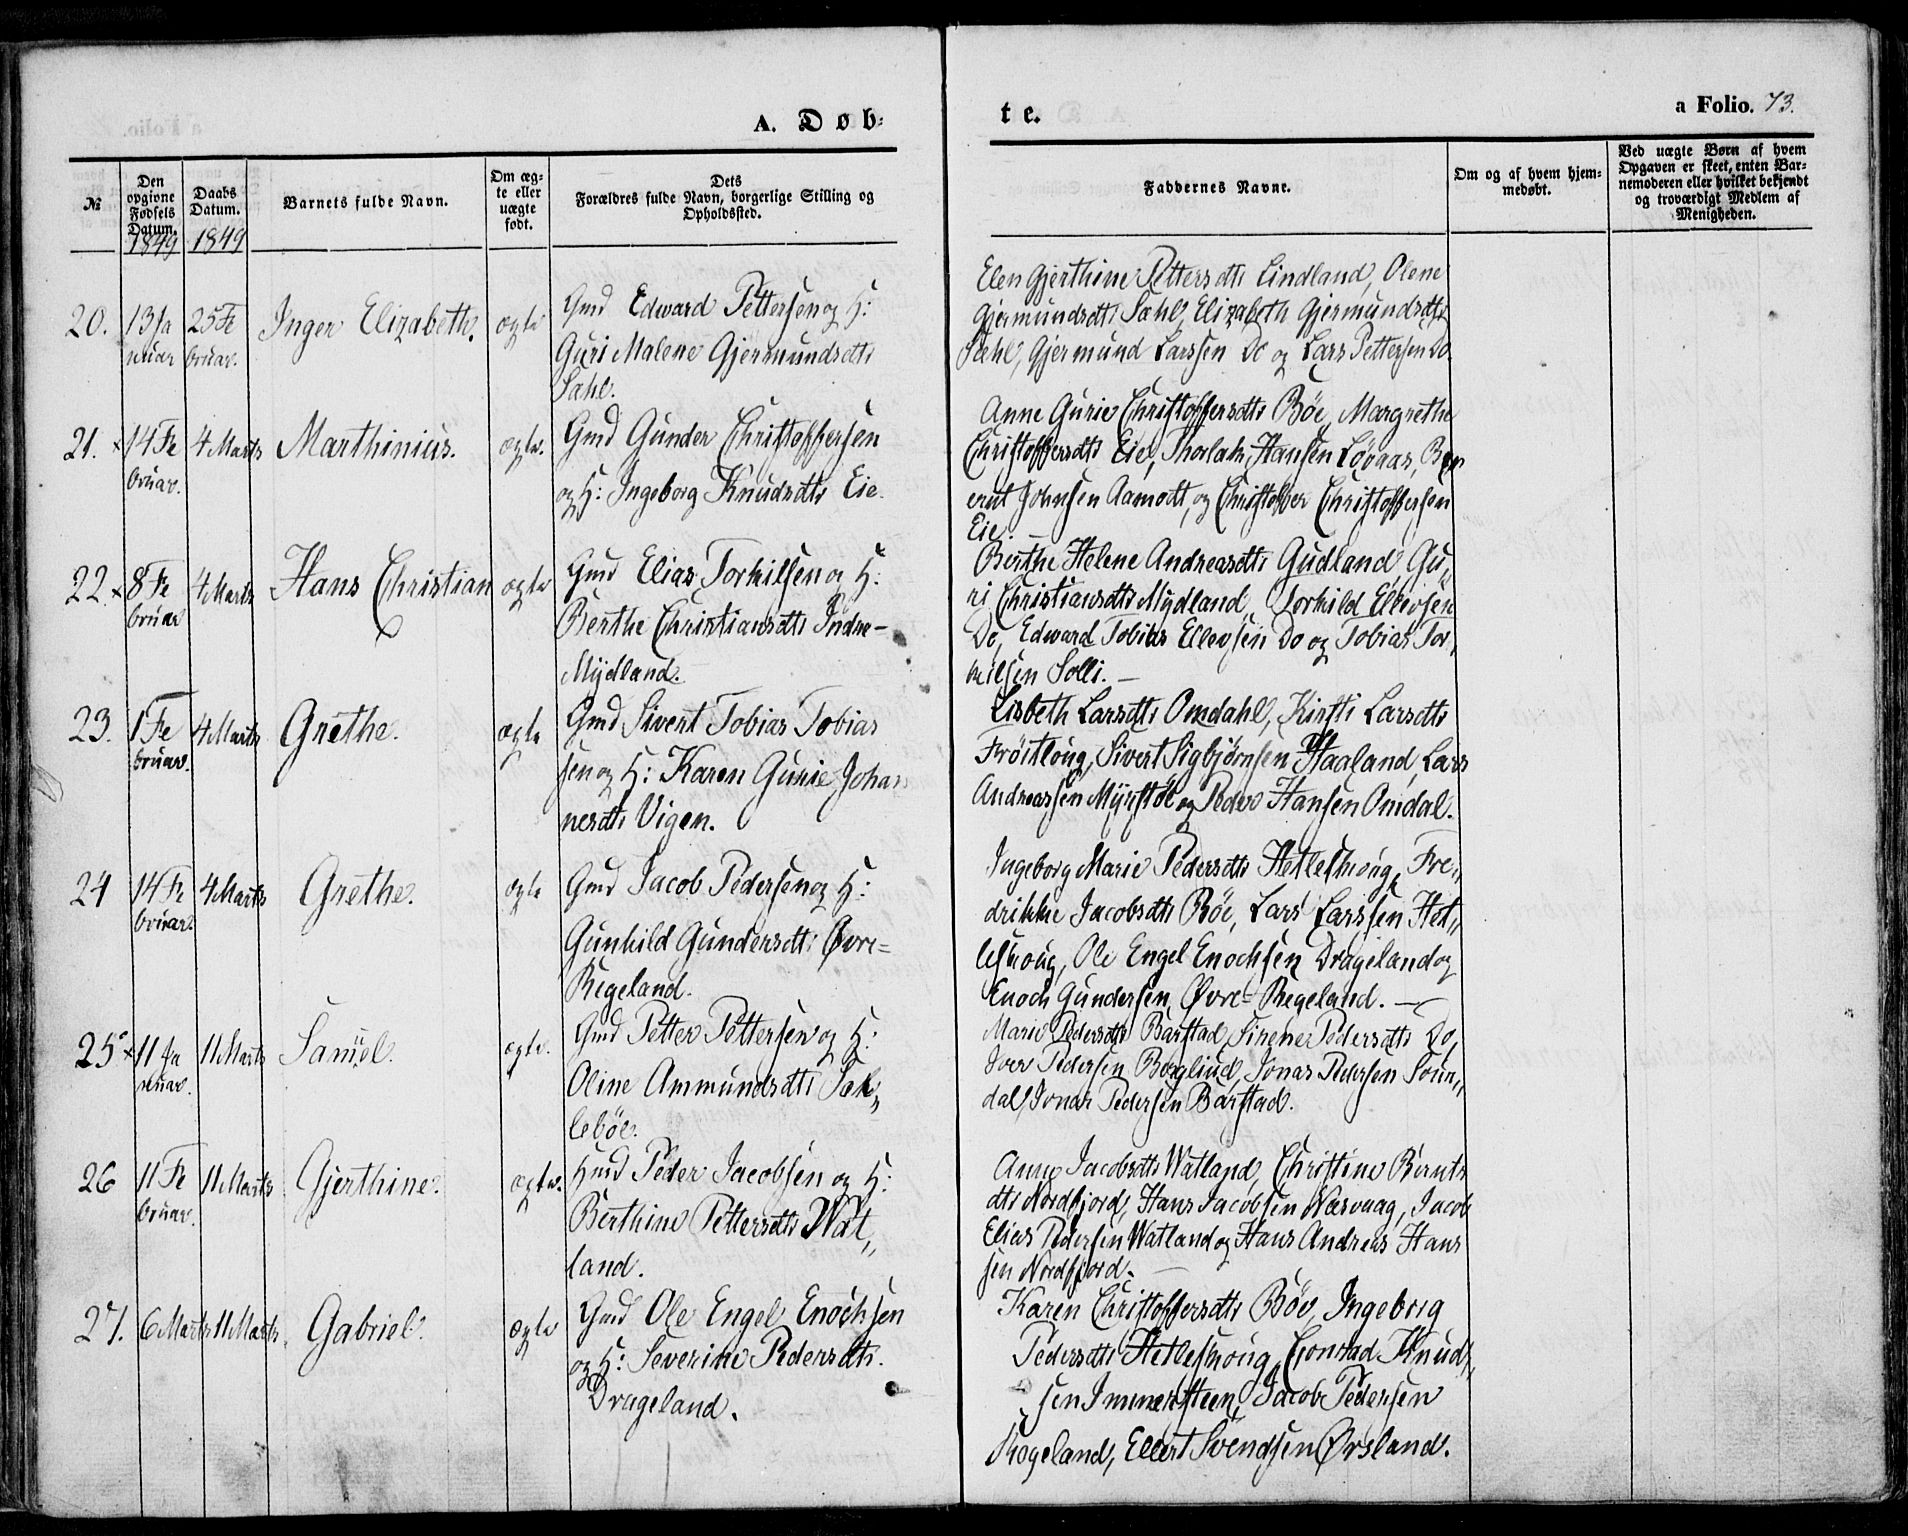 A. Døb-
te.
a Folio. 73.
№
Den opgivne Fødsels Datum. 1849
Daabs Datum. 1849
Barnets fulde Navn.
Om ægte eller uægte født.
Dets Forældres fulde Navn, borgerlige Stilling og Opholdssted.
Faddernes Navne.
Om og af hvem hjemmedøbt.
Ved uægte Børn af hvem Opgaven er skeet, enten Barnemoderen eller hvilket bekjendt og troværdigt Medlem af Menigheden.
20. 13 Ja 25 Fe Inger Elizabeth. ægte Gmd Edward Pettersen og H:
nuar bruar. Guri Malene Gjermundsdtr
Sæhl.
Elen Gjerthine Pettersdtr Lindland, Olene
Gjermundsdtr Sæhl, Elizabeth Gjermundsdtr
Sæhl, Gjermund Larssen Do og Lars Pettersen Do
21. × 14 Fe 4 Marts Marthinius. ægte. Gmd Gunder Christoffersen
bruar. og H: Ingeborg Knudsdtr Eie.
Anne Gurie Christoffersdtr Böe, Margrethe
Christoffersdtr Eie, Thorlak Hansen Løvaas, Ber
ent Johnsen Aamodt, og Christoffer Christoffersen
Eie.
22. × 8 Fe 4 Marts Hans Christian ægte Gmd Elias Torkilsen og H:
bruar Berthe Christiansdtr Indre-
Mydland.
Berthe Helene Andreasdtr Gudland Gu„
ri Christiansdtr Mydland, Torkild Ellevsen
Do, Edward Tobias Ellevsen Do og Tobias Tor„
kilsen Solli.
23. 1 Fe 4 Marts Grethe. ægte Gmd Sivert Tobias Tobias
bruar. sen og H: Karen Gurie Johan
nesdtr Vigen.
Lisbeth Larsdtr Omdahl, Kirsti Larsdtr
Fröitlong, Sivert Sigbjörnsen Haaland, Lars
Andreassen Myrstöl og Peder Hansen Omdal.
24 14 Fe 4 Marts Grethe. ægte Gmd Jacob Pedersen og H:
bruar. Gunhild Gundersdtr Øvre-
Regeland.
Ingeborg Marie Pedersdtr Hetleskoug, Fre„
drikke Jacobsdtr Böe, Lars Larssen Het„
leskoug, Ole Engel Enochsen Drageland og
Enoch Gundersen Øvre-Regeland.
25 × 11 Ja 11 Marts Samuel. ægte. Gmd Petter Pettersen og H:
nuar. Oline Ammundsdtr Sæk„
leböe.
Marie Pedersdtr Barstad, Sirene Pedersdtr Do,
Iver Pedersen Berglind, Jonas Pedersen Soun„
dal, Jonas Pedersen Barstad.
26 11 Fe 11 Marts Gjerthine. ægte. Hmd Peder Jacobsen og H:
bruar. Berthine Pettersdtr Wat„
land.
Anne Jacobsdtr Watland, Christine Bernts
dtr Nordfjord, Hans Jacobsen Næsvaag, Jacob
Elias Pedersen Watland og Hans Andreas Hans
sen Nordfjord.
27. 6 Marts 11 Marts. Gabriel. ægte Gmd Ole Engel Enochsen
og H: Severine Pedersdtr.
Drageland.
Karen Christoffersdtr Böe, Ingeborg
Pedersdtr Hetleskoug, Conrad Knud„
sen Immersteen, Jacob Pedersen
Rogeland, Ellert Svendsen Ørsland.